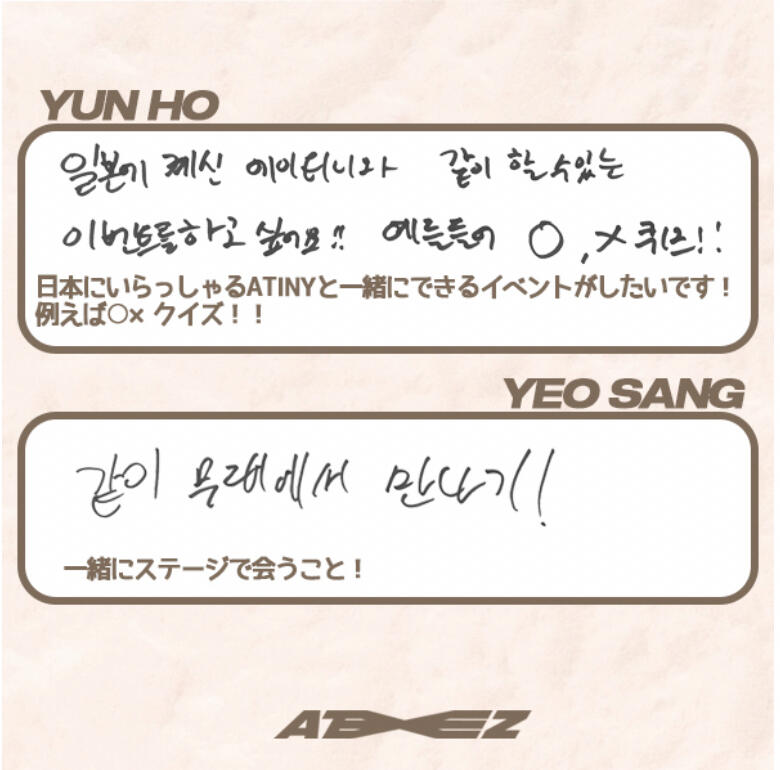 YUN HO
일본에 계신 에이티니와 같이 할 수 있는
이벤트를 하고 싶어요!! 예를 들어 O, X 퀴즈!!
日本にいらっしゃるATINYと一緒にできるイベントがしたいです！
例えば○× クイズ！！
YEO SANG
같이 무대에서 만나기!!
一緒にステージで会うこと！
ATEEZ